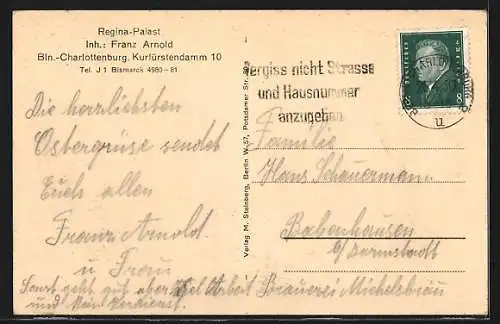 Regina-Palast
Inh.: Franz Arnold
Bln.-Charlottenburg, Kurfürstendamm 10
Tel. J 1 Bismarck 4980-81
Vergiss nicht Strasse
und Hausnummer
anzugeben
Die herrlichsten
Ostergrüse sendet
Euch allen
Franz Arnold.
u Frau
Sonst geht gut aber viel Arbeit
und kein Verdienst.
Verlag M. Steinberg, Berlin W 57, Potsdamer Str.
Familie
Hans Schauermann
Babenhausen
b/ Darmstadt
Brauerei Michelsbräu